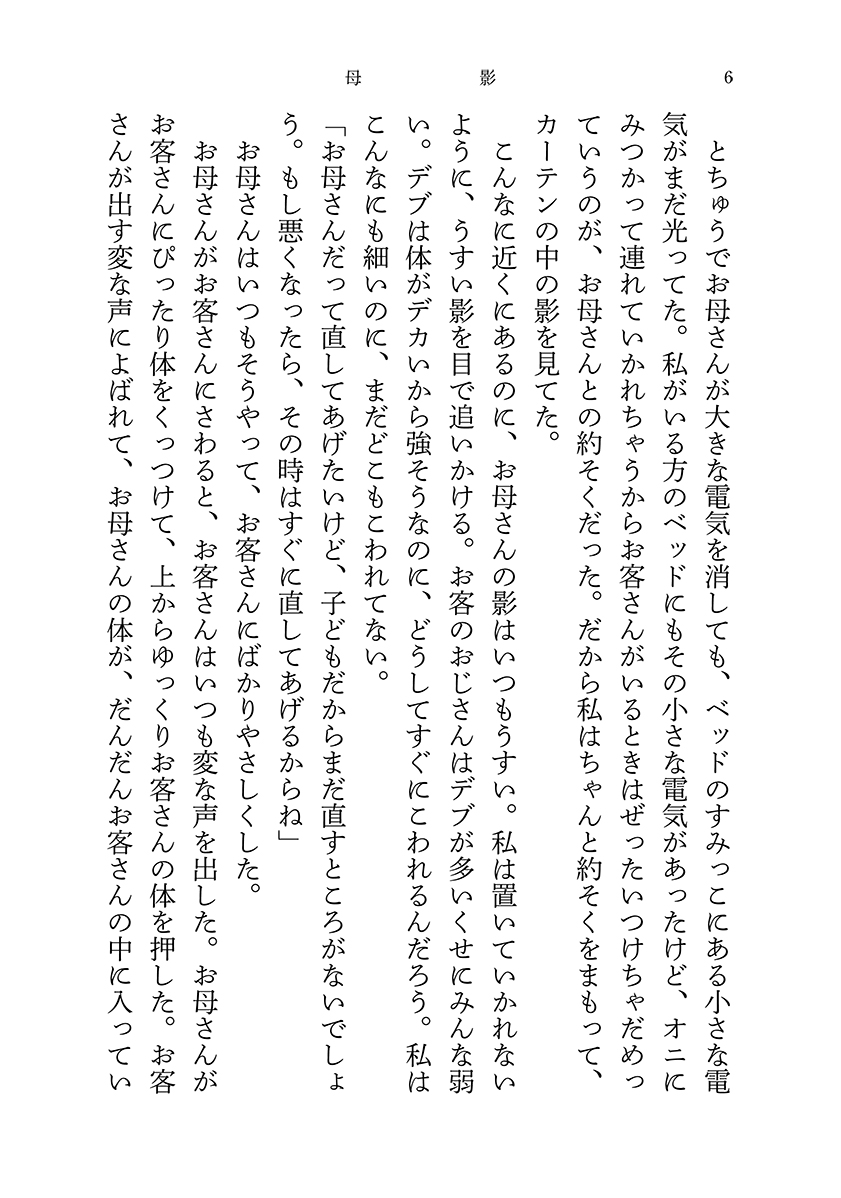 母影
6
とちゅうでお母さんが大きな電気を消しても、ベッドのすみっこにある小さな電
気がまだ光ってた。私がいる方のベッドにもその小さな電気があったけど、オニに
みつかって連れていかれちゃうからお客さんがいるときはぜったいつけちゃだめっ
ていうのが、お母さんとの約そくだった。だから私はちゃんと約そくをまもって、
カーテンの中の影を見てた。
こんなに近くにあるのに、お母さんの影はいつもうすい。私は置いていかれない
ように、うすい影を目で追いかける。お客のおじさんはデブが多いくせにみんな弱
い。デブは体がデカいから強そうなのに、どうしてすぐにこわれるんだろう。私は
こんなにも細いのに、まだどこもこわれてない。
「お母さんだって直してあげたいけど、子どもだからまだ直すところがないでしょ
う。もし悪くなったら、その時はすぐに直してあげるからね」
お母さんはいつもそうやって、お客さんにばかりやさしくした。
お母さんがお客さんにさわると、お客さんはいつも変な声を出した。お母さんが
お客さんにぴったり体をくっつけて、上からゆっくりお客さんの体を押した。お客
さんが出す変な声によばれて、お母さんの体が、だんだんお客さんの中に入ってい